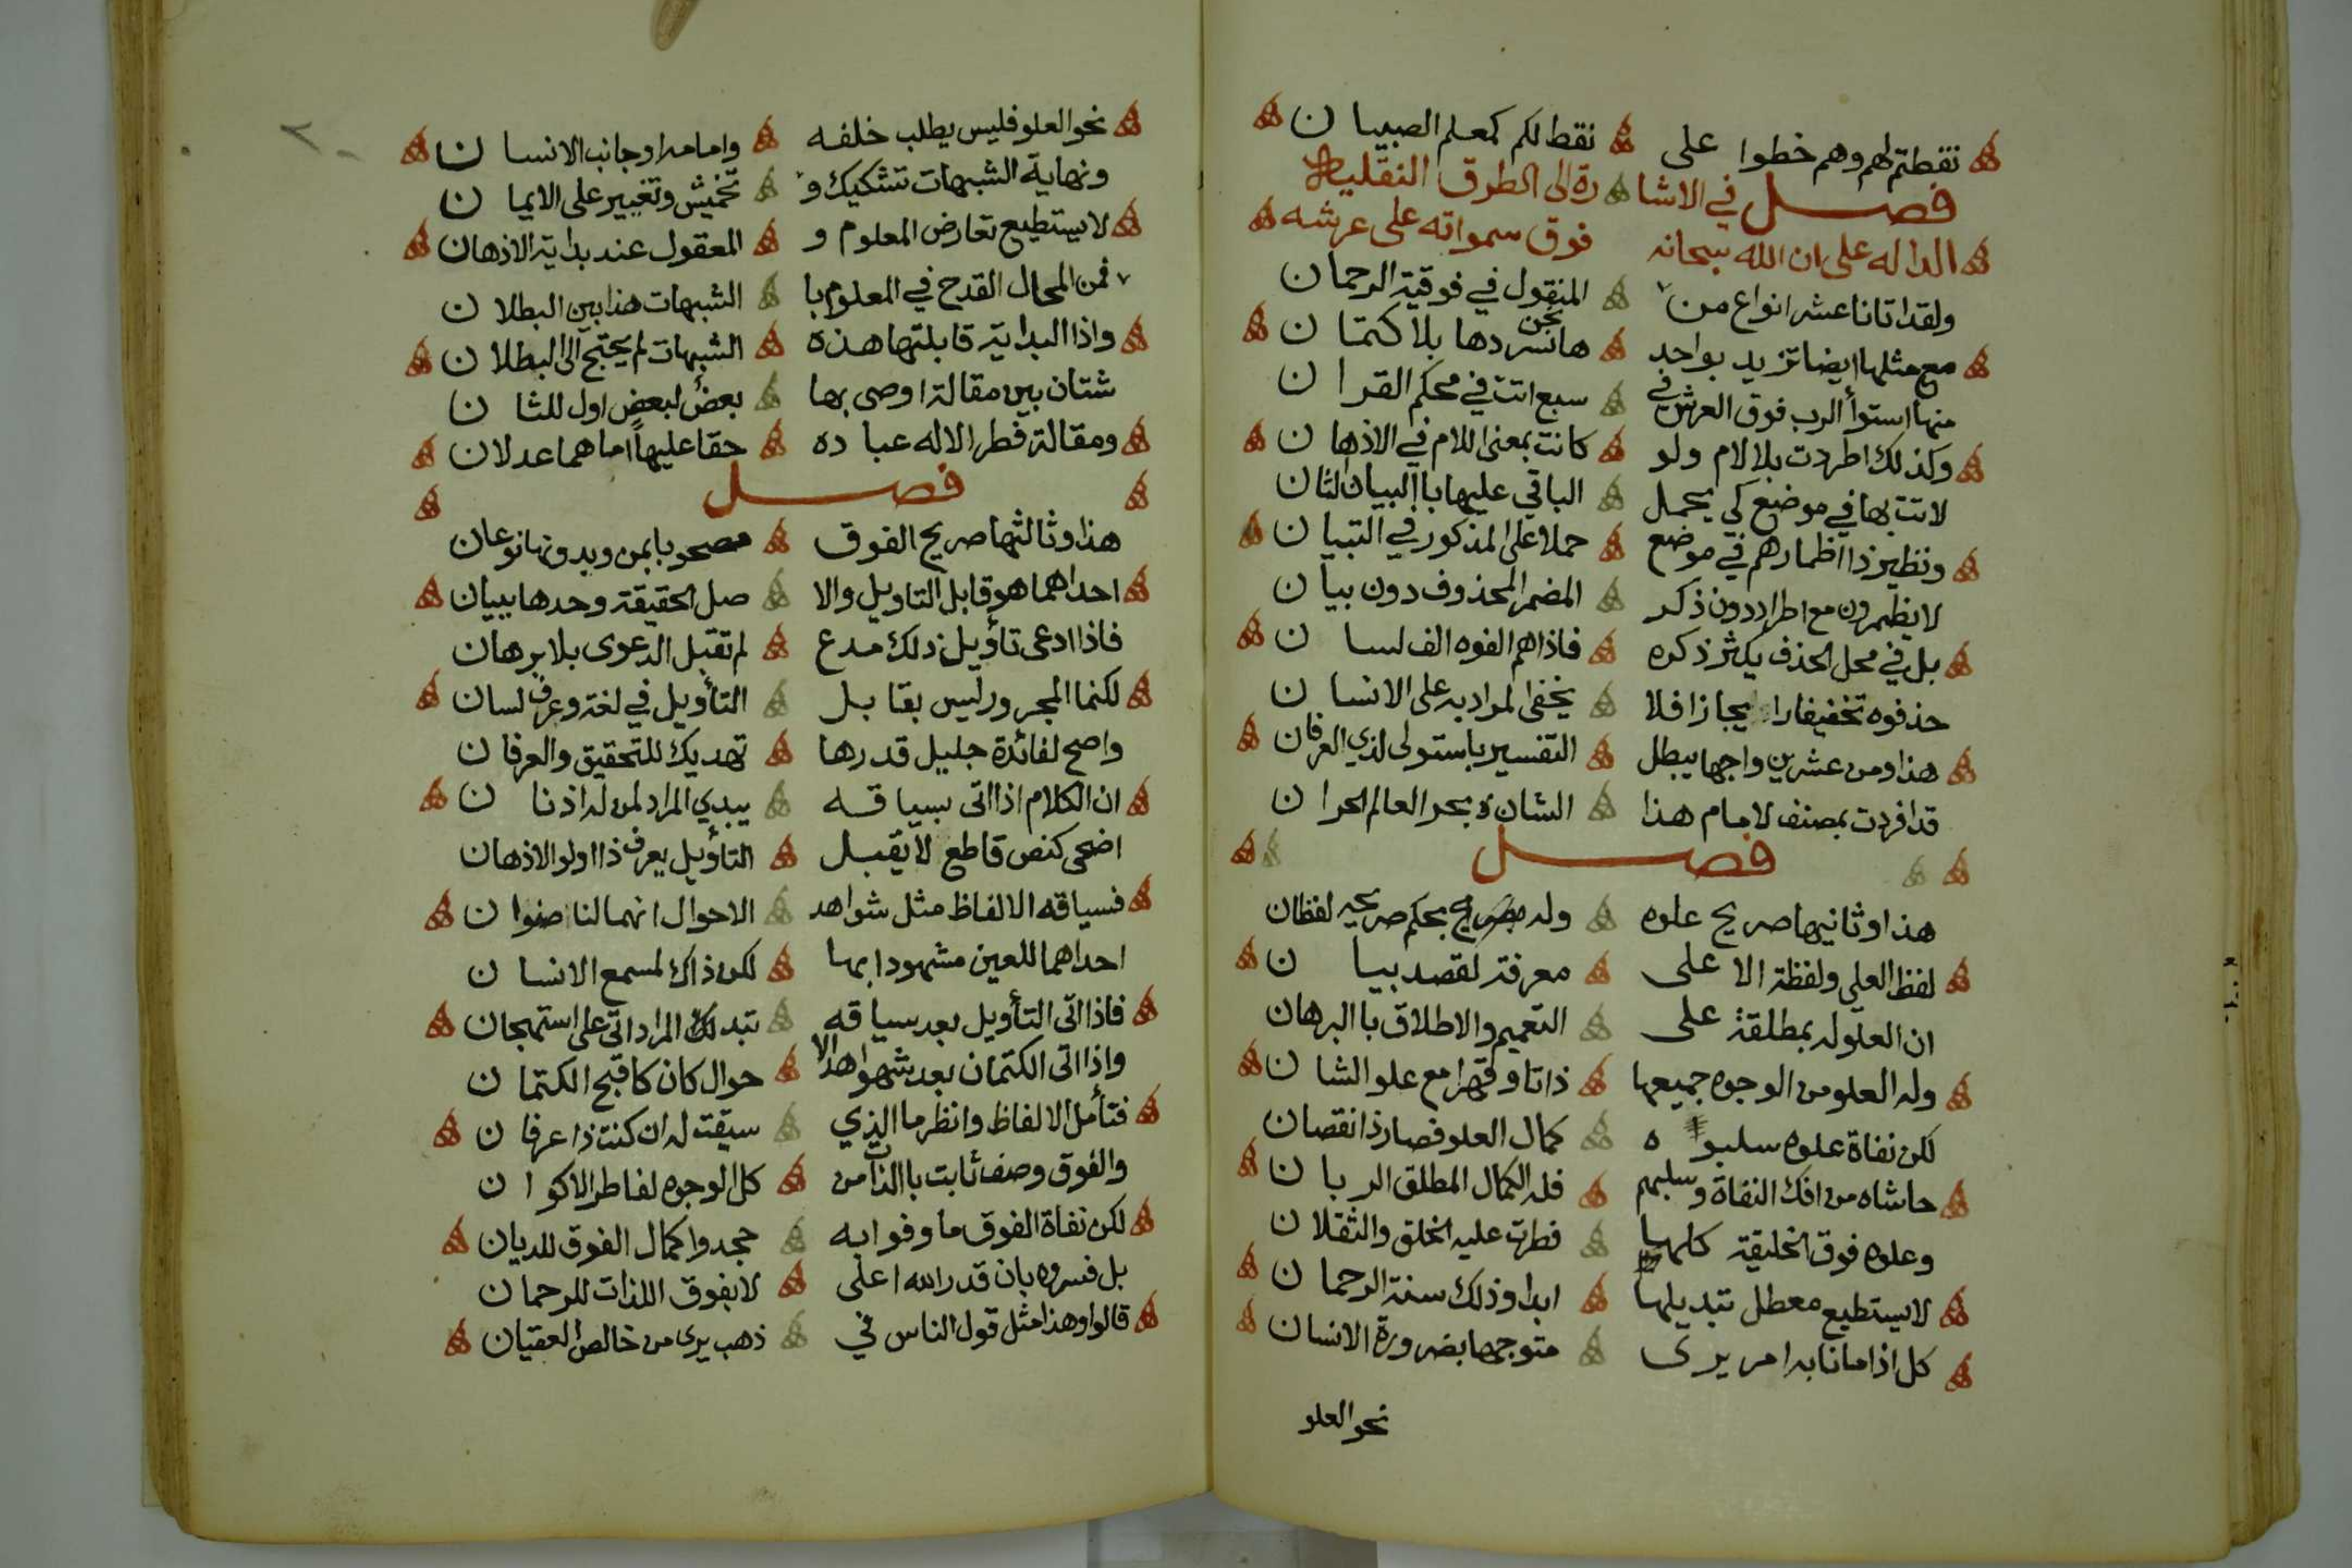 نقطتم لهم وهم خطوا على نقط لكم كمعلم الصبيان
فصل في الاشا رة الى الطرق النقلية
الداله على ان الله سبحانه فوق سمواته على عرشه
ولقد اتانا عشر انواع من المنقول في فوقية الرحمان
مع مثلها ايضا تزيد بواحد ها نحن نسردها بلا كتمان
منها استوأ الرب فوق العرش في سبع اتت في محكم القران
وكذلك اطردت بلا لام ولو كانت بمعنى اللام في الاذهان
لاتت بها في موضع كي يحمل الباقي عليها باالبيان الثان
ونظير ذا اظمارهم في موضع حملا على المذكور في التبيان
لا يظمرون مع اطراد دون ذكر المضمر المحذوف دون بيان
بل في محل الحذف يكثر ذكره فاذا هم الفوه الف لسان
حذفوه تخفيفا وايجازا فلا يخفى المراد به على الانسان
هذا ومن عشرين واجها يبطل التفسير باستولى لذي العرفان
قد افردت بمصنف لامام هذا الشان بحر العالم الحران
فصل
هذا وثانيها صريح علوه وله بحكم صريحه لفظان
لفظ العلي ولفظة الاعلى معرفة لقصد بيان
ان العلو له بمطلقة على التعميم والاطلاق باالبرهان
وله العلو من الوجوه جميعها ذاتا وقهرا مع علو الشان
لكن نفاة علوه سلبوه كمال العلو فصار ذا نقصان
حاشاه من افك النفاة وسلبهم فله الكمال المطلق الربان
وعلوه فوق الخليقة كلها فطرت عليه الخلق والثقلان
لا يستطيع معطل تبديلها ابدا وذلك سنة الرحمان
كل اذا ما نابه امر يرى متوجها بضرورة الانسان
نحو العلو
نحو العلو فليس يطلب خلفه وامامه او جانب الانسان
ونهاية الشبهات تشكيك و تخميش وتغبير على الايمان
لا يستطيع تعارض المعلوم و المعقول عند بداية الاذهان
فمن المحال القدح في المعلوم با الشبهات هذا بين البطلان
واذا البداية قابلتها هذه الشبهات لم يحتج الى البطلان
شتان بين مقالة اوصى بها بعض لبعض اول للثان
ومقالة فطر الاله عباده حقا عليها ما هما عدلان
فصل
هذا وثالثها صريح الفوق مصحوبا بمن وبدونها نوعان
احداهما هو قابل التاويل والا صل الحقيقة وحدها ببيان
فاذا ادعى تأويل ذلك مدع لم تقبل الدعوى بلا برهان
لكنما المجرور ليس بقابل التأويل في لغة وعرف لسان
واصح لفائدة جليل قدرها تهديك للتحقيق والعرفان
ان الكلام اذا اتى بسياقه يبدي المراد لمن له اذنان
اضحى كنص قاطع لا يقبل التأويل يعرف ذا اولو الاذهان
فسياقه الالفاظ مثل شواهد الاحوال انهما لنا صنوان
احداهما للعين مشهودا بها لكن ذاك لمسمع الانسان
فاذا اتى التأويل بعد سياقه تبدلك المراد اتى على استهجان
واذا اتى الكتمان بعد شواهد الا حوال كان كاقبح الكتمان
فتأمل الالفاظ وانظر ما الذي سيقت له ان كنت ذا عرفان
والفوق وصف ثابت باالذات من كل الوجوه لفاطر الاكوان
لكن نفاة الفوق ما وفوا به جحدوا كمال الفوق للديان
بل فسروه بان قدر الله اعلى لا بفوق اللذات للرحمان
قالوا وهذا مثل قول الناس في ذهب يرى من خالص العقيان